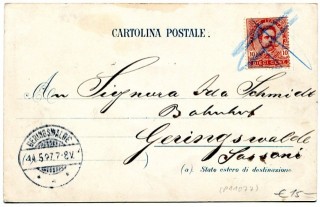 CARTOLINA POSTALE.
10 10
An Signora Ida Schmidt
Bahnhof
Geringswalde
Sassoni
GERINGSWALDE
14.5.97.7-8.V.
(a) Stato estero di destinazione
€ 15-